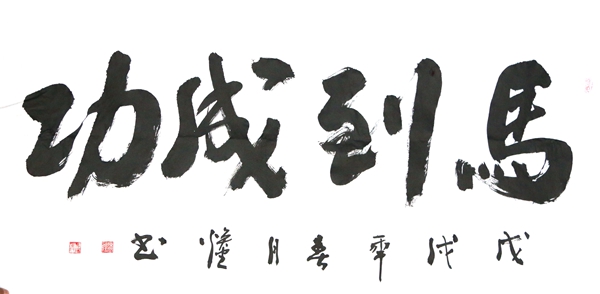 馬到成功
戊戌年春月书